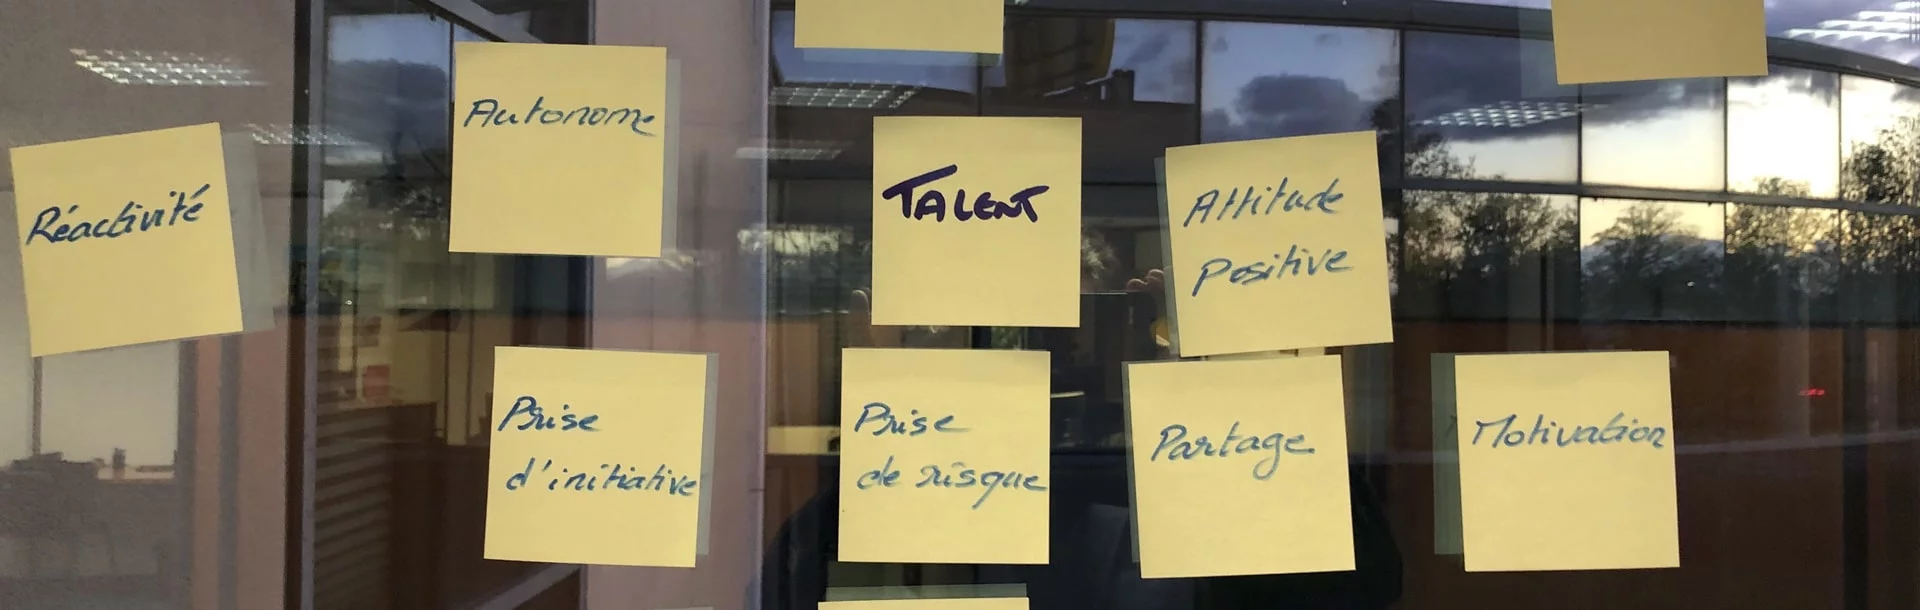 Réactivité
Autonome
TALENT
Attitude
Positive
Prise
d'initiative
Prise
de risque
Partage
Motivation